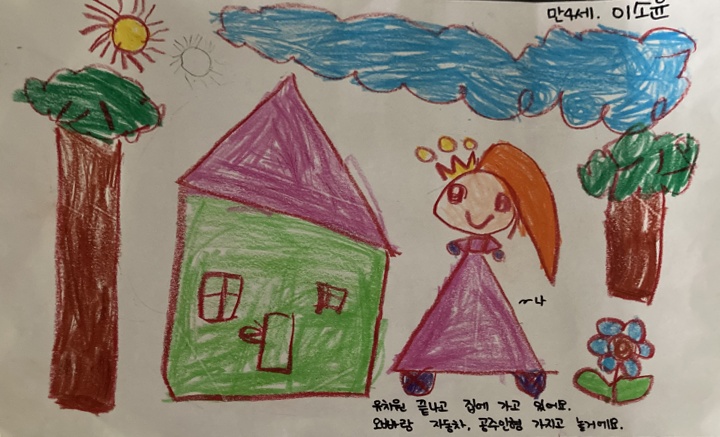 만4세. 이소윤
~나
유치원 끝나고 집에 가고 있어요.
오빠랑 자동차, 공주인형 가지고 놀거에요.